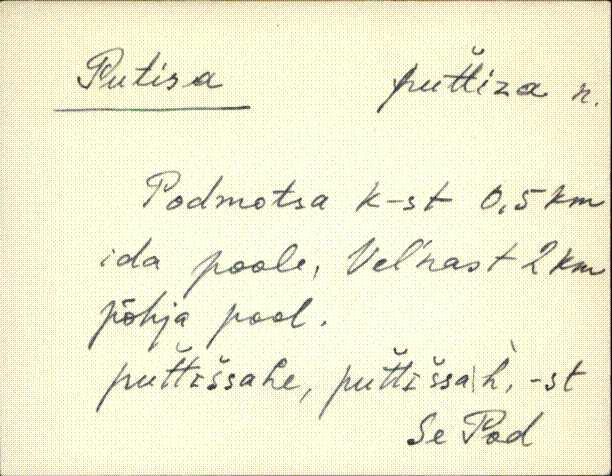 Putisa put̆t̆iza n.
Podmotsa k-st 0,5 km
ida poole, Vel'nast 2 km
põhja pool.
put̆t̆išsahe, put̆t̆išsah, -st
Se Pod